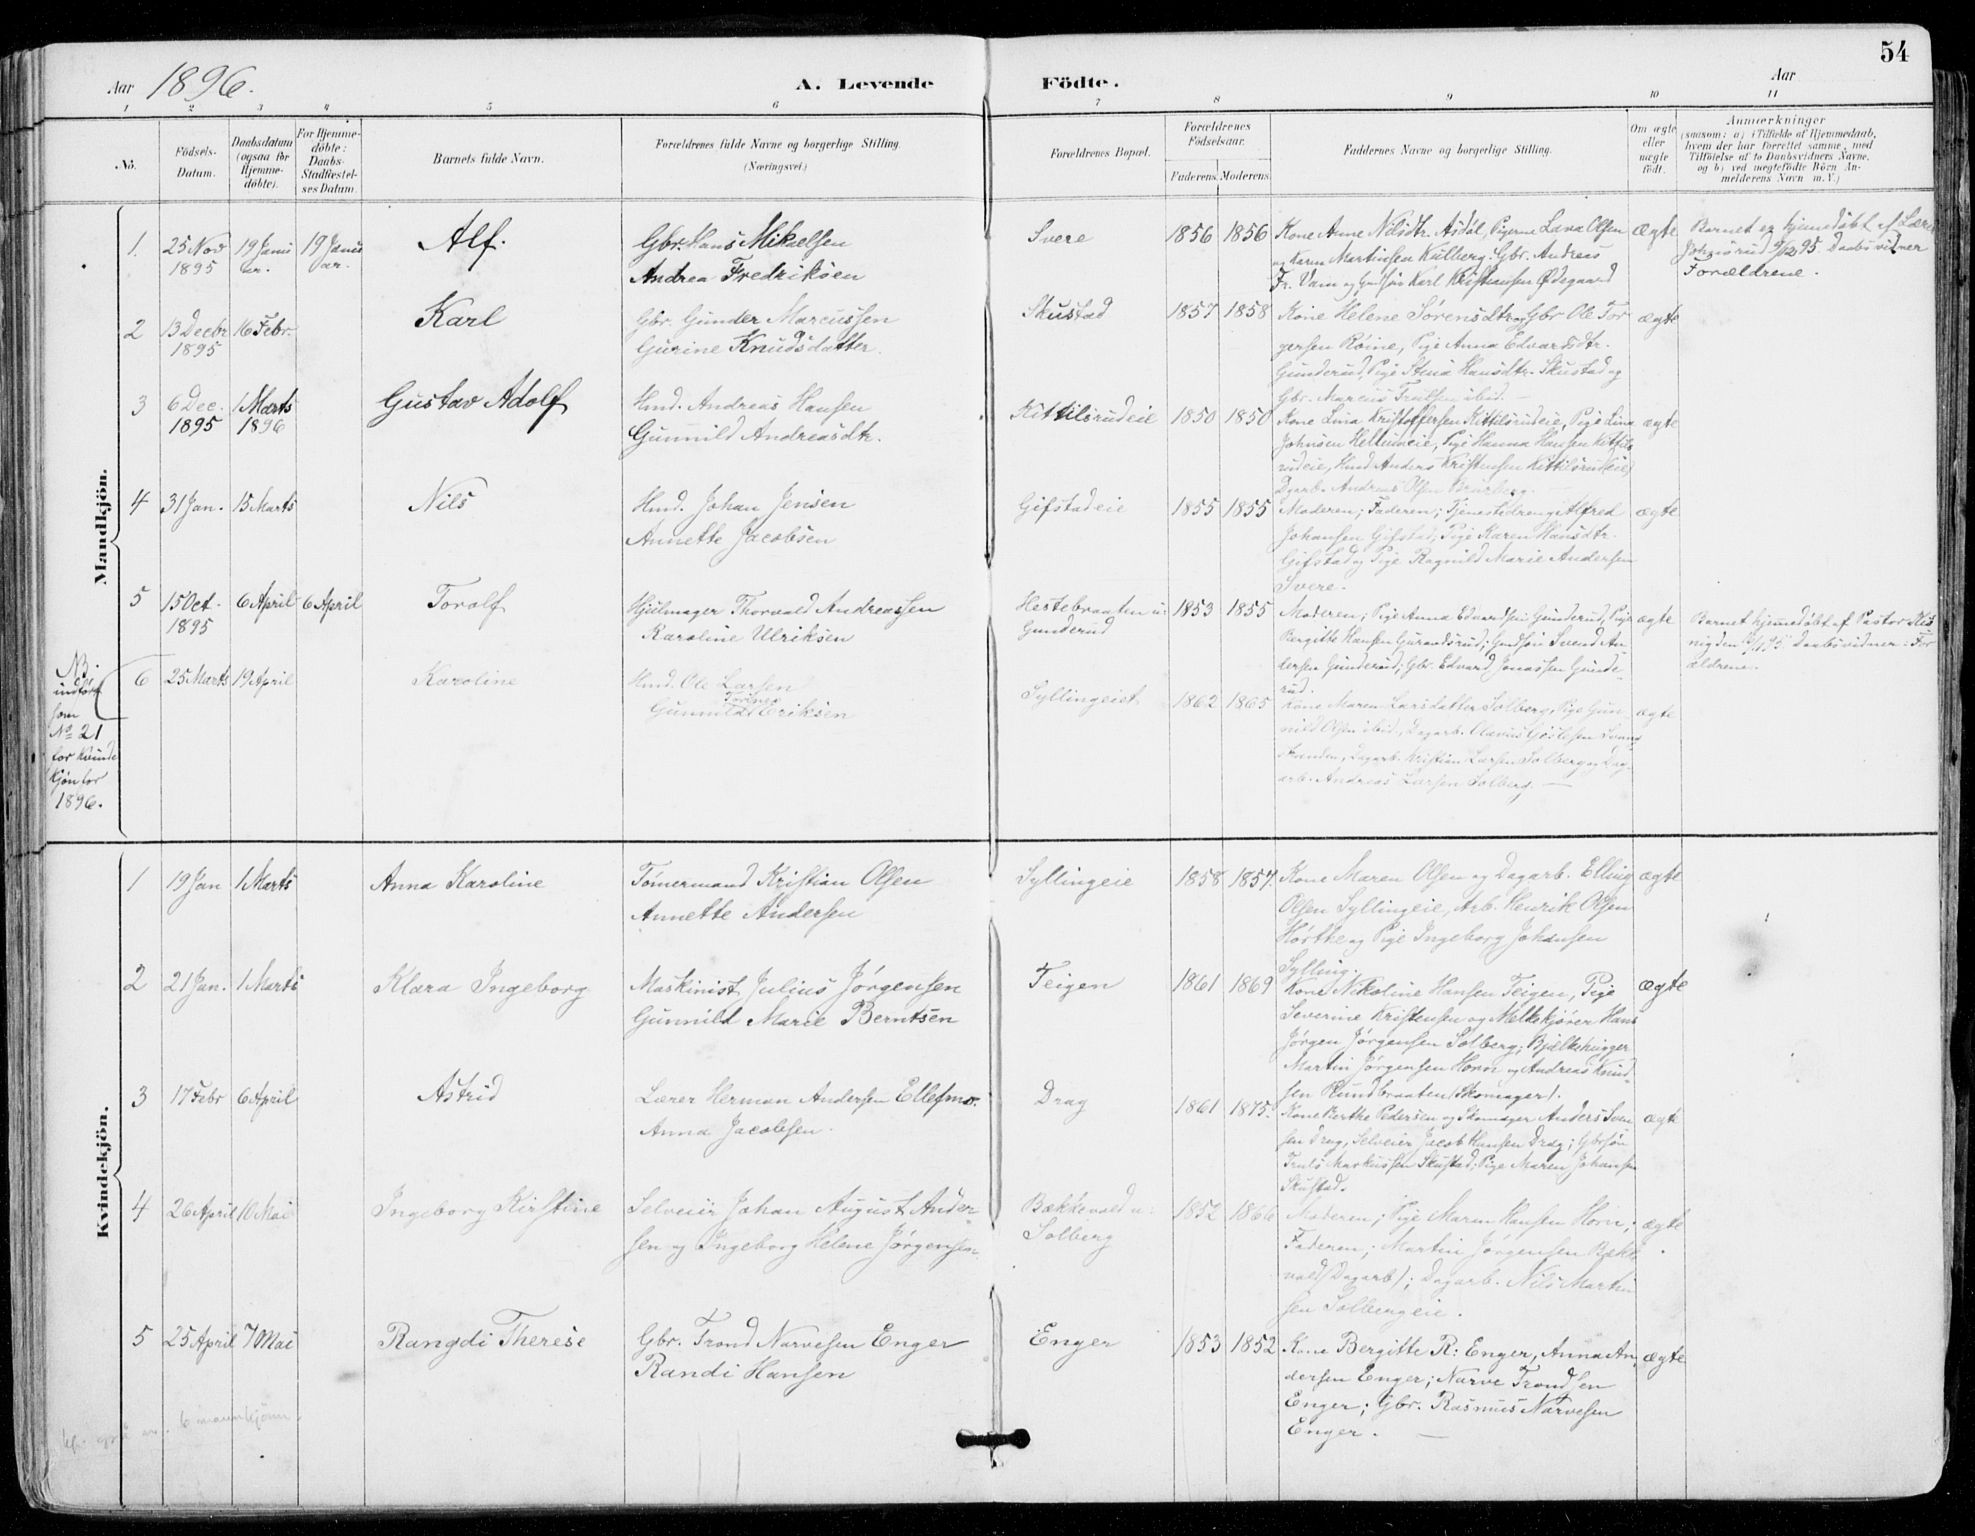 54
Aar 1896.
A. Levende Födte.
Aar
1 2 3 4 5 6 7 8 9 10 11
No.
Födsels-Datum.
Daabsdatum (ogsaa for Hjemmedöbte).
For Hjemmedöbte: Daabs-Stadfæstelses Datum.
Barnets fulde Navn.
Forældrenes fulde Navne og borgerlige Stilling. (Næringsvei.)
Forældrenes Bopæl.
Forældrenes Födselsaar.
Faderens. Moderens.
Faddernes Navne og borgerlige Stilling.
Om ægte eller uægte födt.
Anmærkninger
(saasom: a) i Tilfælde af Hjemmedaab,
hvem der har forrettet samme, med
Tilföielse af to Daabsvidners Navne,
og b) ved uegtefödte Börn Anmelderens Navn m. V.)
Mandkjön.
1. 25 Nov 1895 19 Janu ar. 19 Janu ar. Alf.
Gbr. Hans Mikaelsen
Andrea Fredriksen
Svere 1856 1856
Kone Anne Nilsdtr. Asdøl, Pigerne Lava Olsen
og Karen Martinsen Kulberg. Gbr. Andreas
Fr. Vam og Gudsøn Karl Kristiansen Ødegaard
ægte
Barnet er hjemdøbt af Lærer
Johnsrud 9/12 95. Daabsvidner
Forældrene.
2 13 Decbr 1895 16 Febr. Karl
Gbr. Gunder Marcussen
Gurine Knudsdatter.
Skustad 1857 1858
Kone Helene Sørensdtr og Gbr Ole Tor
gersen Røine, Pige Anna Edvardsdtr.
Gunderud, Pige Stina Hansdtr. Skustad og
Gbr. Marcus Trulsen ibid. —
ægte
3 6 Dec. 1895 1 Marts 1896 Gustav Adolf
Hmd. Andreas Hansen
Gunnild Andreasdtr.
Kittilsrudeie 1850 1850
Kone Lina Kristoffersen Kittilsrudeie, Pige Lina
Johnsen Hellumeie, Pige Hanna Hansen Kittils
rudeie, Hmd Anders Kristensen Kittilsrudeie,
Dgarb. Andreas Olsen
ægte
4 31 Jan. 15 Marts Nils
Hmd. Johan Jensen
Annette Jacobsen
Gifstadeie 1855 1855
Moderen; Faderen; Tjenestdreng Alfred
Johansen Gifstad; Pige Karen Hansdtr.
Gifstad og Pige Ragnild Marie Andersen
Svere.
ægte
5 15 Oct. 1895 6 April 6 April Torolf
Hjulmager Thorvald Andreassen
Karoline Ulriksen
Hestebraaten u: Gunderud 1853 1855
Moderen; Pige Anna Edvardsen Gunderud, Pige
Bergitte Hansen; Gudsøn Svend An
dersen Gunderud; Gbr. Edvard Jonassen Gunde-
rud.
ægte
Barnet hjemmedøbt af Pastor
95 Daabsvidner: For
ældrene.
NB.
indført
som
No 21
for Kvinde
Kjøn for
1896.
6 25 Marts 19 April Karoline
Hmd. Ole Larsen
Gunnild Eriksen
Syllingeiet 1862 1865
Kone Maren Larsdatter Solberg, Pige Gun-
nild Olsen ibid., Dagarb. Olavus
Dagarb. Kristian Larsen Solberg og Dag-
arb. Andreas Larsen Solberg. —
ægte
Kvindekjön.
1 19 Jan 1 Marts Anna Karoline
Tømermand Kristian Olsen
Annette Andersen
Syllingeie 1858 1857.
Kone Maren Olsen og Dagarb. Elling
Olsen Syllingeie, Arb. Henrik Olsen
Hørthe og Pige Ingeborg Johansen
Sylling.
ægte
2 21 Jan. 1 Marts Klara Ingeborg
Maskinist Julius Jørgensen
Gunnild Marie Berntsen
Teigen 1861 1869
Kone Nikoline Hansen Teigen, Pige
Severine Kristensen og Melkekjører Hans
Jørgen Jørgensen Solberg; Bjælkehugger
Martin Jørgensen Horn og Andreas Knud-
sen Rundbraaten (Skomager).
ægte
3 17 Febr 6 April Astrid
Lærer Herman Andersen Ellefmo.
Anna Jacobsen.
Drag 1861 1875.
Kone Berthe Pedersen og Skomager Anders Sven
sen Drag, Selveier Jacob Hansen Drag; Gbrsøn
Truls Markussen Skustad; Pige Maren Johansen
Skustad.
ægte
4 26 April 10 Mai Ingeborg Kirstine
Selveier Johan August Ander
sen og Ingeborg Helene Jørgensen
Bækkevold u: Solberg 1852 1866
Moderen; Pige Maren Hansen Horn;
Faderen; Martin Jørgensen Bække
vold (Dagarb); Dagarb. Nils Martin
sen Solbergeie.
ægte
5 25 April 7 Mai Rangdi Therese
Gbr. Trond Narvesen Enger
Randi Hansen
Enger 1853 1852
Kone Bergitte R: Enger, Anna An
dersen Enger; Narve Trondsen
Enger; Gbr. Rasmus Narvesen
Enger. —
ægte
6 mannkjønn.